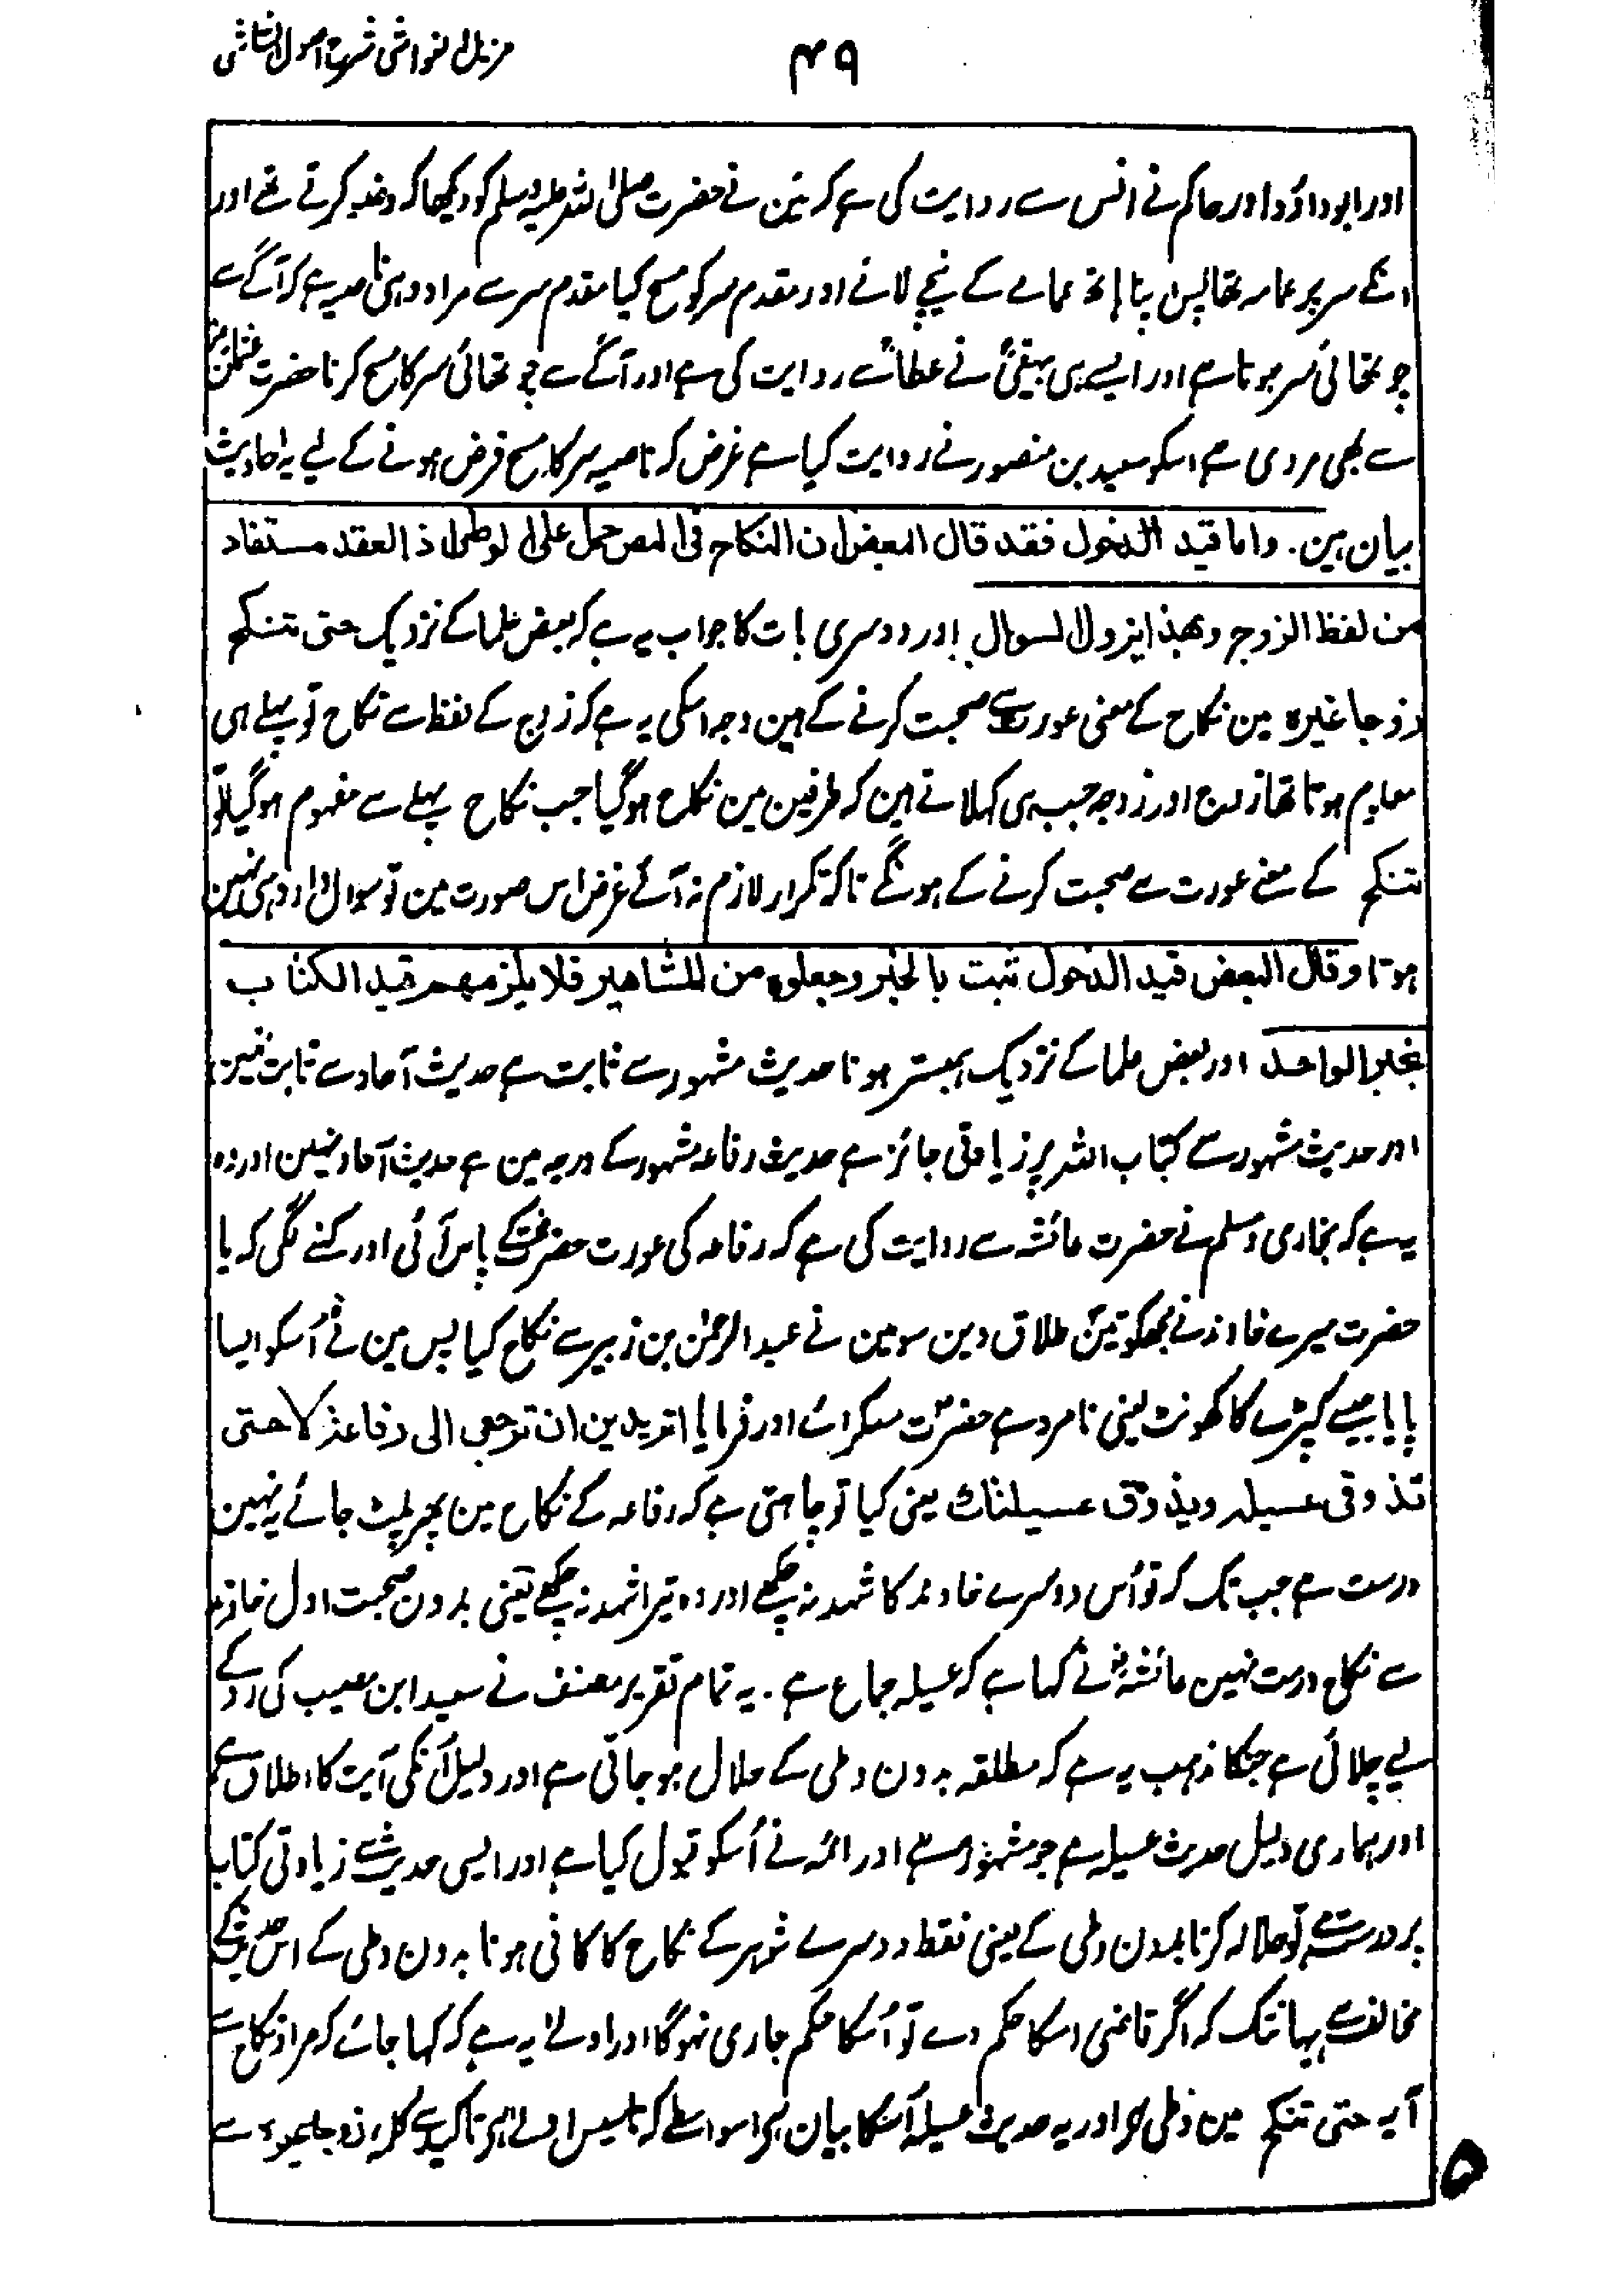 مزیل الغواشی شرح اصول الشاشی
۴۹
اور ابوداؤد اور حاکم نے انس سے روایت کی ہے کہ مین نے حضرت صلی اللہ علیہ وسلم کو دیکھا کہ وضو کرتے تھے اور
انکے سر پر عمامہ تھا پس اپنا ہاتھ عمامے کے نیچے لائے اور مقدم سر کو مسح کیا مقدم سر سے مراد وہی ناصیہ ہے کہ آگے سے
چوتھائی سر ہوتا ہے اور ایسے ہی بیہقیؒ نے عطاؒ سے روایت کی ہے اور آگے سے چوتھائی سر کا مسح کرنا حضرت عثمانؓ
سے بھی مروی ہے اسکو سعید بن منصور نے روایت کیا ہے غرض کہ ناصیہ سر کا مسح فرض ہونے کے لیے یہ احادیث
بیان ہین۔ واما قید الدخول فقد قال البعض ان النکاح فی النص حمل علی الوطی اذ العقد مستفاد
من لفظ الزوج وبھذا یزول السوال۔ اور دوسری بات کا جواب یہ ہے کہ بعض علما کے نزدیک حتی تنکح
زوجا غیرہ مین نکاح کے معنی عورت سے صحبت کرنے کے ہین وجہ اسکی یہ ہے کہ زوج کے لفظ سے نکاح تو پہلے ہی
معلوم ہوتا تھا زوج اور زوجہ جب ہی کہلاتے ہین کہ طرفین مین نکاح ہوگیا جب نکاح پہلے سے مفہوم ہوگیا تو
تنکح کے معنے عورت سے صحبت کرنے کے ہونگے تاکہ تکرار لازم نہ آئے غرض اس صورت مین تو سوال وارد ہی نہین
ہوتا وقال البعض قید الدخول ثبت بالخبر وجعلوہ من المشاھیر فلا یلزمھم قید الکتاب
بخبر الواحد اور بعض علما کے نزدیک ہمبستر ہونا حدیث مشہور سے ثابت ہے حدیث آحاد سے ثابت نہین
اور حدیث مشہور سے کتاب اللہ پر زیادتی جائز ہے حدیث رفاعہ مشہور کے درجہ مین ہے حدیث آحاد نہین اور وہ
یہ ہے کہ بخاری و مسلم نے حضرت عائشہ سے روایت کی ہے کہ رفاعہ کی عورت حضرتؐ کے پاس آئی اور کہنے لگی کہ یا
حضرت میرے خاوند نے مجھکو تین طلاق دین سو مین نے عبدالرحمٰن بن زبیر سے نکاح کیا پس مین نے اُسکو ایسا
پایا جیسے کپڑے کا کھونٹ یعنی نامرد ہے حضرتؐ مسکرائے اور فرمایا اتریدین ان ترجعی الی رفاعۃ لا حتی
تذوقی عسیلہ ویذوق عسیلتک یعنی کیا تو چاہتی ہے کہ رفاعہ کے نکاح مین پھر پلٹ جائے یہ نہین
درست ہے جب تک کہ تو اُس دوسرے خاوند کا شہد نہ چکھے اور وہ تیرا شہد نہ چکھے یعنی بدون صحبت اول خاوند
سے نکاح درست نہین عائشہؓ نے کہا ہے کہ عسیلہ جماع ہے۔ یہ تمام تقریر مصنف نے سعید ابن مسیب کی رد کے
لیے چلائی ہے جنکا مذہب یہ ہے کہ مطلقہ بدون وطی کے حلال ہوجاتی ہے اور دلیل اُنکی آیت کا اطلاق ہے
اور ہماری دلیل حدیث عسیلہ ہے جو مشہور ہے اور ائمہ نے اُسکو قبول کیا ہے اور ایسی حدیث سے زیادتی کتاب
پر درست ہے تو حلالہ کرنا بدون وطی کے یعنی فقط دوسرے شوہر کے نکاح کا کافی ہونا بدون وطی کے اس حدیث کے
مخالف ہے یہانتک کہ اگر قاضی اسکا حکم دے تو اُسکا حکم جاری نہوگا اور اولے یہ ہے کہ کہا جائے کہ مراد نکاح سے
آیہ حتی تنکح مین وطی ہے اور یہ حدیث عسیلہ اُسکا بیان ہے اسواسطے کہ تاسیس اولے ہے تاکید سے کلمہ زوجا غیرہ سے
۵